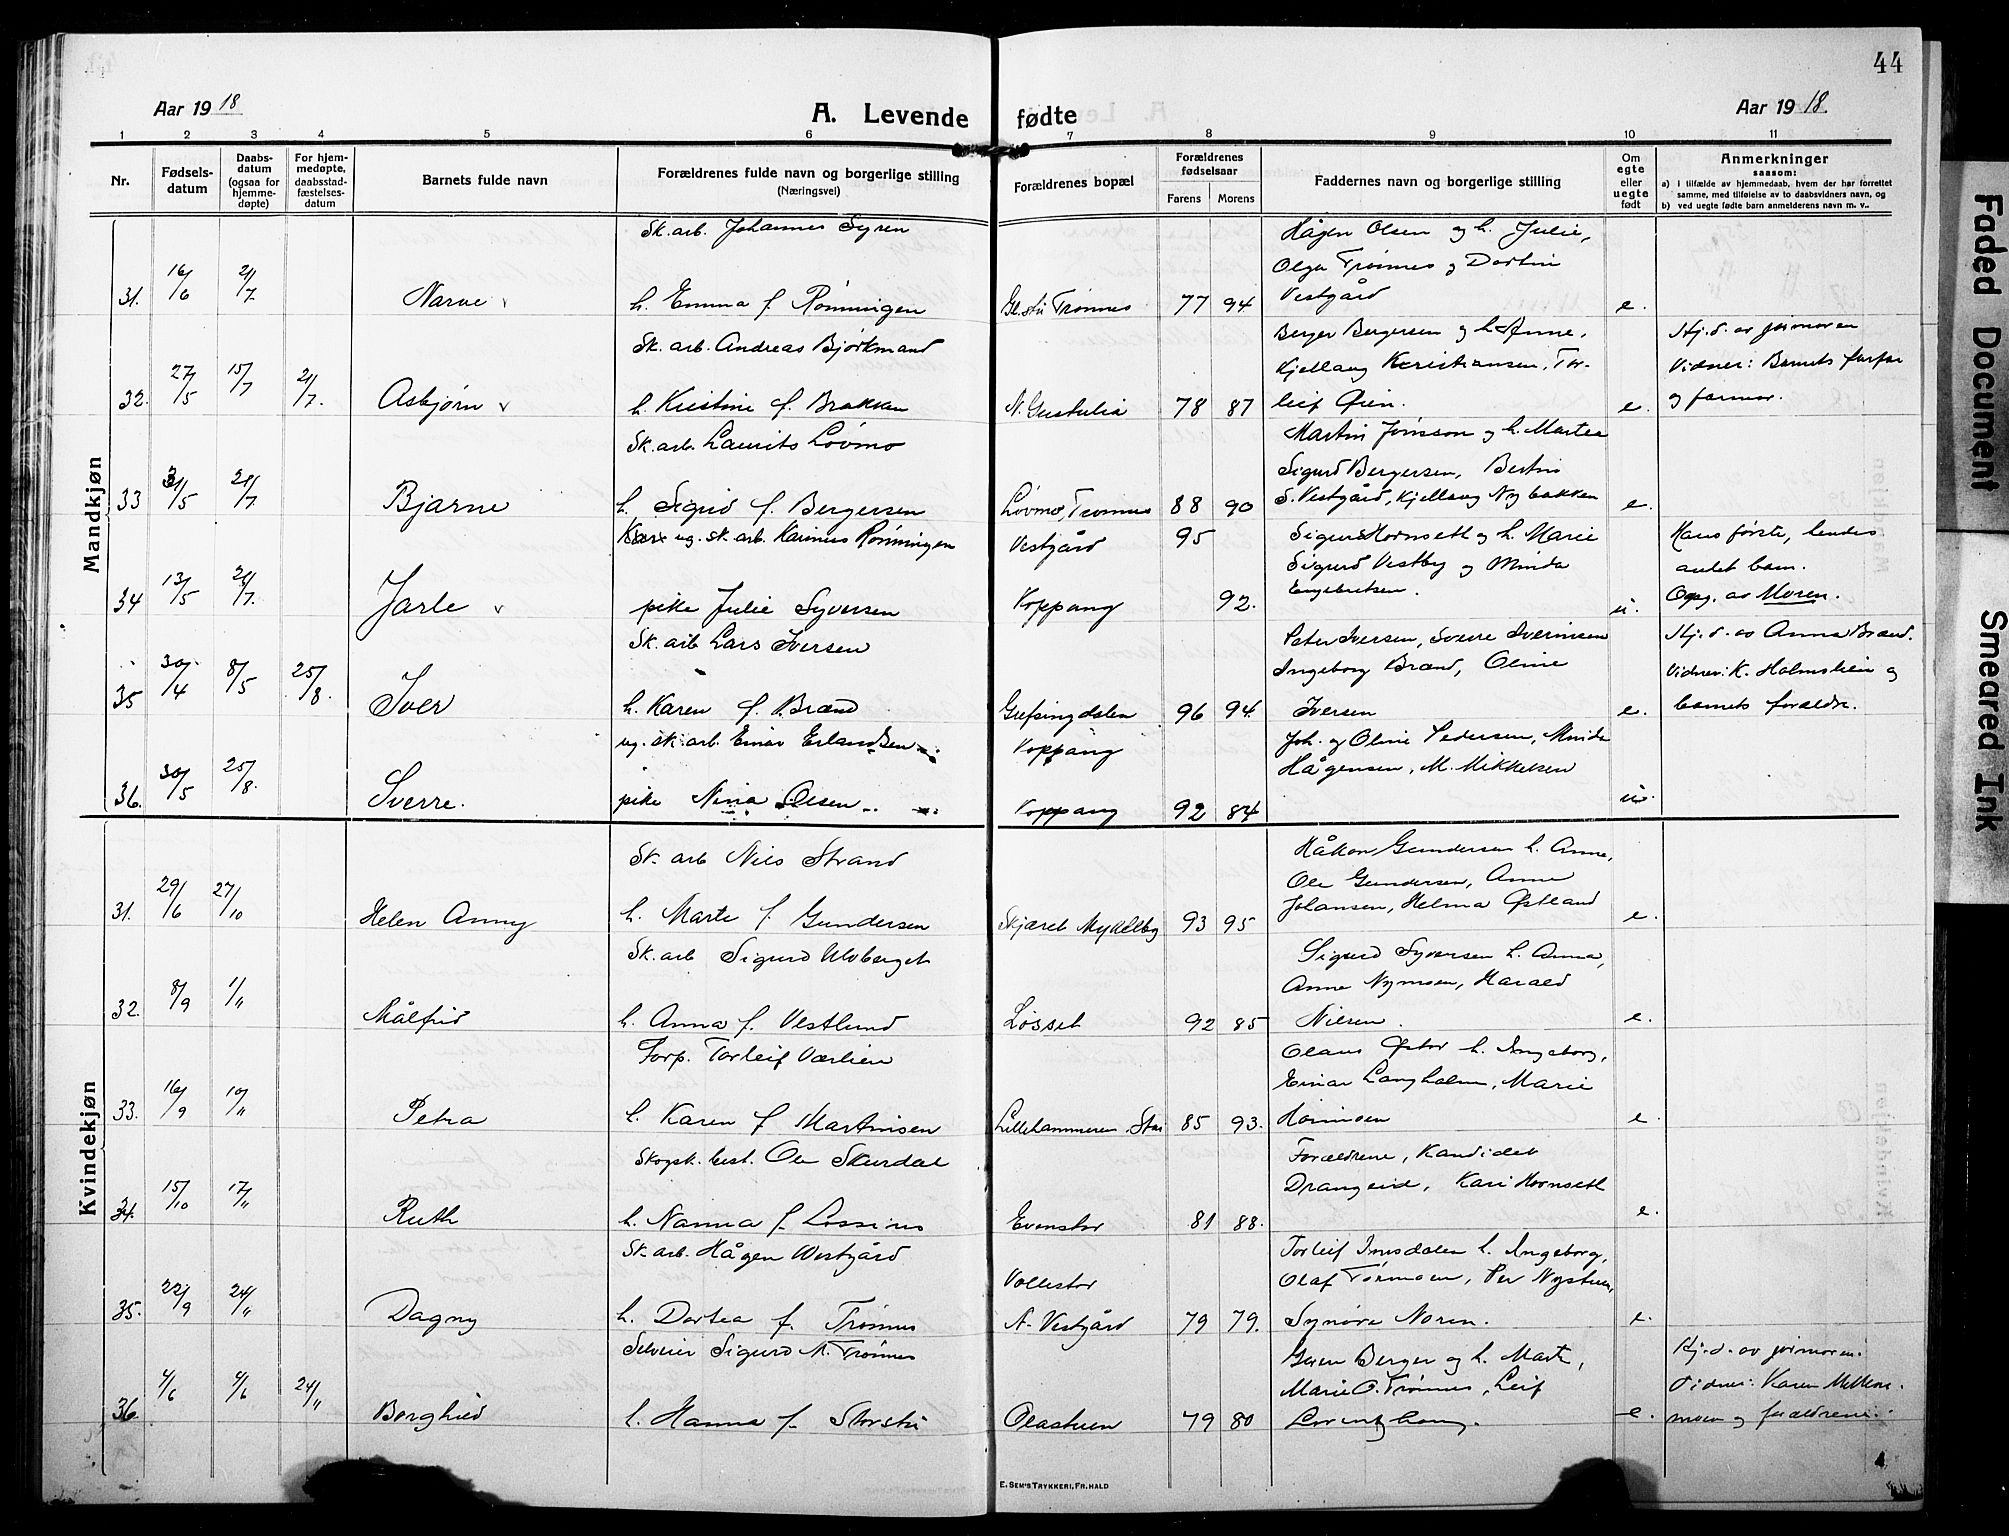 44
Aar 1918
A. Levende fødte
Aar 1918
1 2 3 4 5 6 7 8 9 10 11
Nr.
Fødsels-
datum
Daabs-
datum
(ogsaa for
hjemme-
døpte)
For hjem-
medøpte,
daabsstad-
fæstelses-
datum
Barnets fulde navn
Forældrenes fulde navn og borgerlige stilling
(Næringsvei)
Forældrenes bopæl
Forældrenes
fødselsaar
Farens Morens
Faddernes navn og borgerlige stilling
Om
egte
eller
uegte
født
Anmerkninger
saasom:
a) i tilfælde av hjemmedaab, hvem der har forrettet
samme, med tilføielse av to daabsvidners navn, og
b) ved uegte fødte barn anmelderens navn m. v.
Mandkjøn
Sk. arb. Johannes Syren
Hågen Olsen og h. Julie,
Olga Trønnes og Dortin
31. 16/6 21/7. Narve
h. Emma f. Rønningen
Gl. stu Trønnes 77 94 Vestgård e.
Sk. arb. Andreas Bjørkmand
Berger Bergersen og h. Anne,
Hj. d. av jormoren
Kjellaug Kristiansen, Tor-
Vidner: Barnets farfar
32. 27/5 15/7 21/7. Asbjørn
h. Kristine f. Brakken
78 87 leif Øien. e.
og farmor.
Sk. arb. Laurits Løvmo
Martin Jonsson og h. Martea
Sigurd Bergersen, Bertin
33 31/5 21/7. Bjarne
h. Sigrid f. Bergersen
Løvmo, Trønnes 88 90 S. Vestgård, Kjellaug Nybakken e.
ug. sk. arb. Karinus Rønningen
Vestgård 95 Sigurd Hornseth og h. Marie
Hans første, hendes
Sigurd Vestby og Minda
andet barn.
34 13/5 21/7. Jarle
pike Julie Syversen
Koppang 92. Engebretsen. u.
Opg. av Moren.
Sk. arb Lars Iversen
Peter Iversen, Sverre Iverinsen
Hj. d. av Anna Brænd.
Ingeborg Brænd, Oline
Vidner: K. Holmstien og
35 30/4 8/5 25/8. Iver
h. Karen f. Brænd
Grefsingdalen 96 94. Iversen e.
barnets forældre.
ug. sk. arb. Einar Erlandsen
Koppang
Joh. og Oline Pedersen, Minda
Hågensen, M. Mikkelsen
36. 30/5 25/8. Sverre.
pike Nina Olsen
Koppang 92 84 u.
Kvindekjøn
Sk. arb Nils Strand
Håkon Gundersen h. Anne,
Ole Gundersen, Anne
31. 29/6 27/10 Helen Anny
h. Marte f. Gundersen
Skjæret Mykleby 93 95 Johansen, Helma Østland e.
Sk. arb Sigurd Ulvberget
Sigurd Syversen h. Anna,
Anne Nymoen, Harald
32. 8/9 1/" Målfrid
h. Anna f. Vestlund
Løsset 92 85 Nilsen. e.
Forp. Torleif Værlien
Olaus Østor h. Ingeborg,
Einar Langholm, Marie
33. 16/9 10/" Petra
h. Karen f. Martinsen
Lillehammeren. Stai 85 93. e.
Skogsk. best. Ole Skurdal
Forældrene, Kandidat
Drangeid, Kari Hornseth
34. 15/10 17/" Ruth
h. Nanna f. Lossius
Evenstor 81 88. e.
Sk. arb. Hågen Westgård
Vollestor
Torleif Imsdalen h. Ingeborg,
Olaf Tørmoen, Per Nystuen,
35. 22/9 24/" Dagny
h. Dortea f. Trønnes
N. Vestgård 79 79. Synøve Noren. e.
Selveier Sigurd M. Trønnes
Goren Berger og h. Marte,
Hj. d. av jormoren.
Marie O. Trønnes, Leif
Vidner: Karen Mellem-
36. 4/6 9/6 24/" Borghild
h. Hanna f. Storstu
Olastuen 79 80 e.
moen og forældrene.
E. SEM'S TRYKKERI, FR.HALD
Faded Document
Smeared Ink